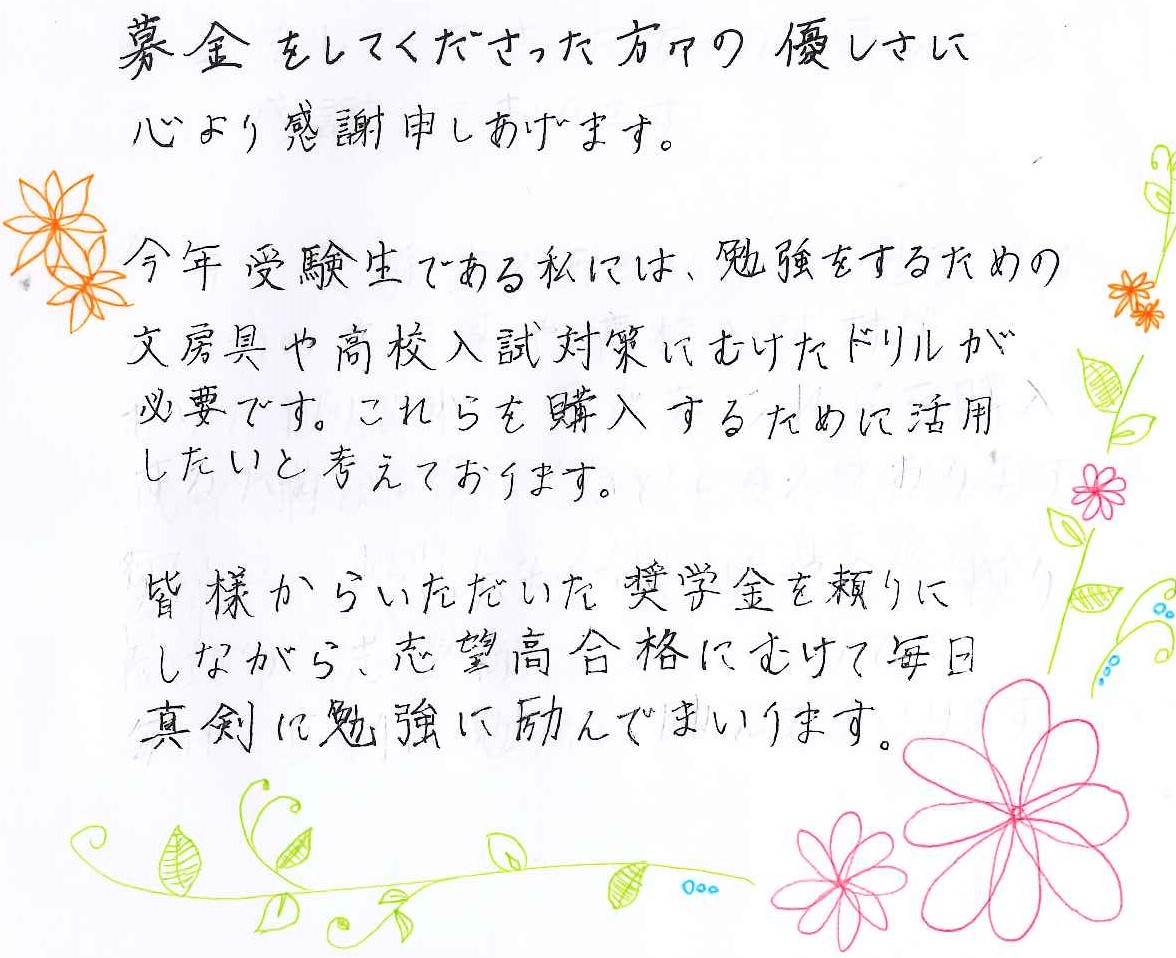 募金をしてくださった方々の優しさに
心より感謝申しあげます。
今年受験生である私には、勉強をするための
文房具や高校入試対策にむけたドリルが
必要です。これらを購入するために活用
したいと考えております。
皆様からいただいた奨学金を頼りに
しながら、志望高合格にむけて毎日
真剣に勉強に励んでまいります。